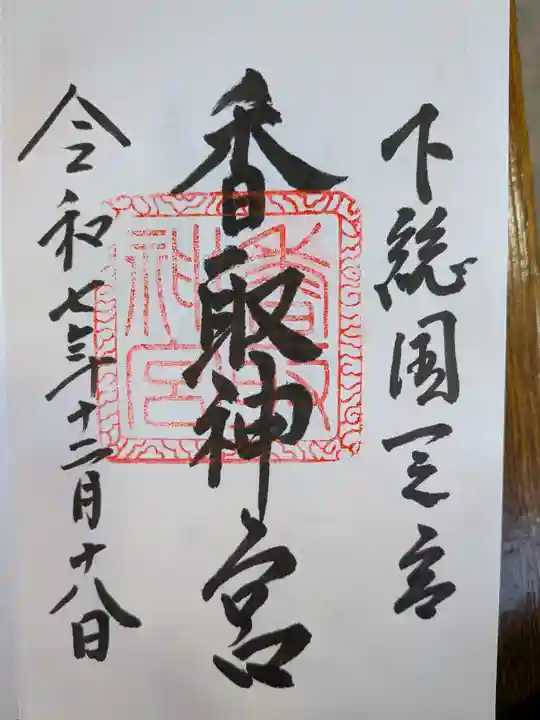 下総国一之宮
香取神宮
令和七年十二月十八日
香取
神宮